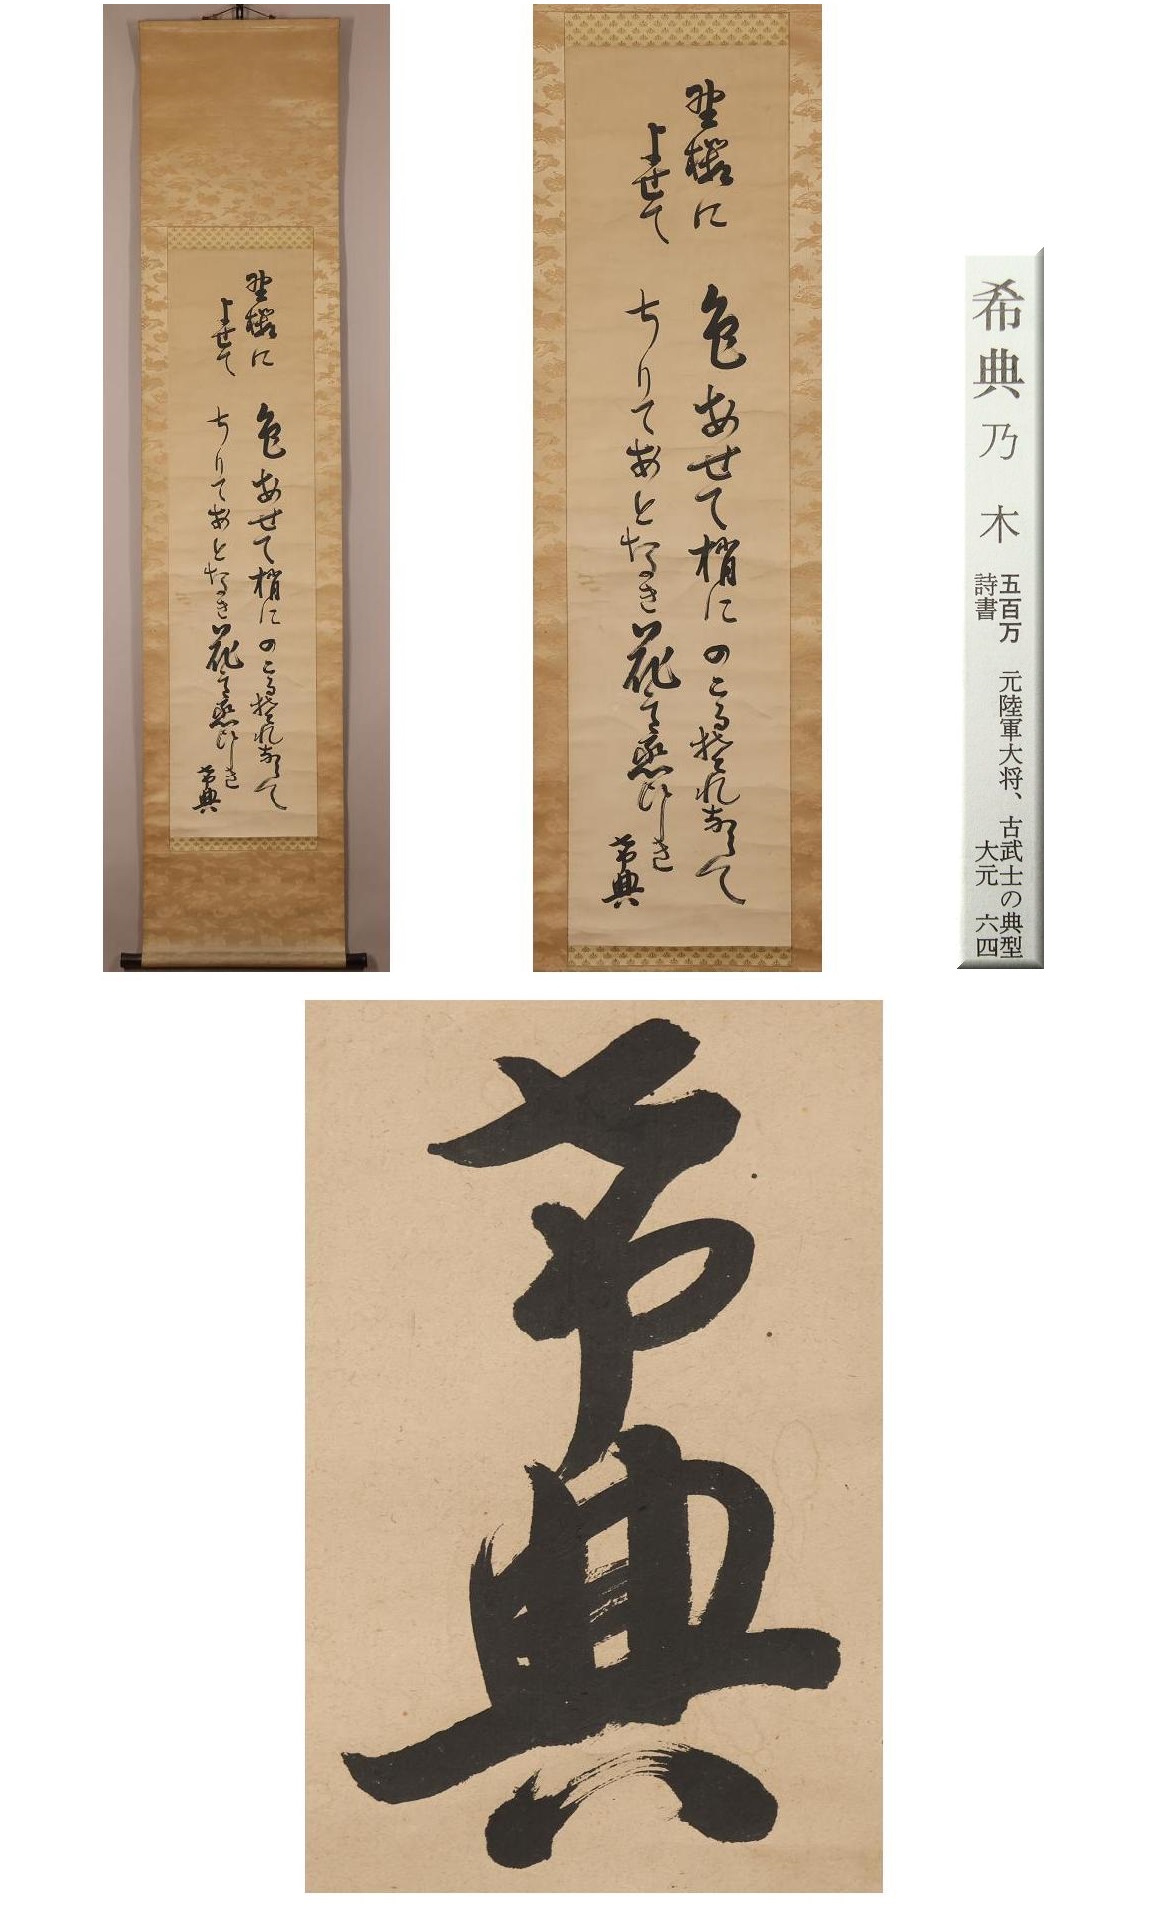 埜櫻に
よせて
色あせて梢にのこるそれならて
ちりてあとなき花そ戀ひしき
希典
埜櫻に
よせて
色あせて梢にのこるそれならて
ちりてあとなき花そ戀ひしき
希典
希典 乃木 五百万 元陸軍大将、古武士の典型
詩書 大元 六四
希典